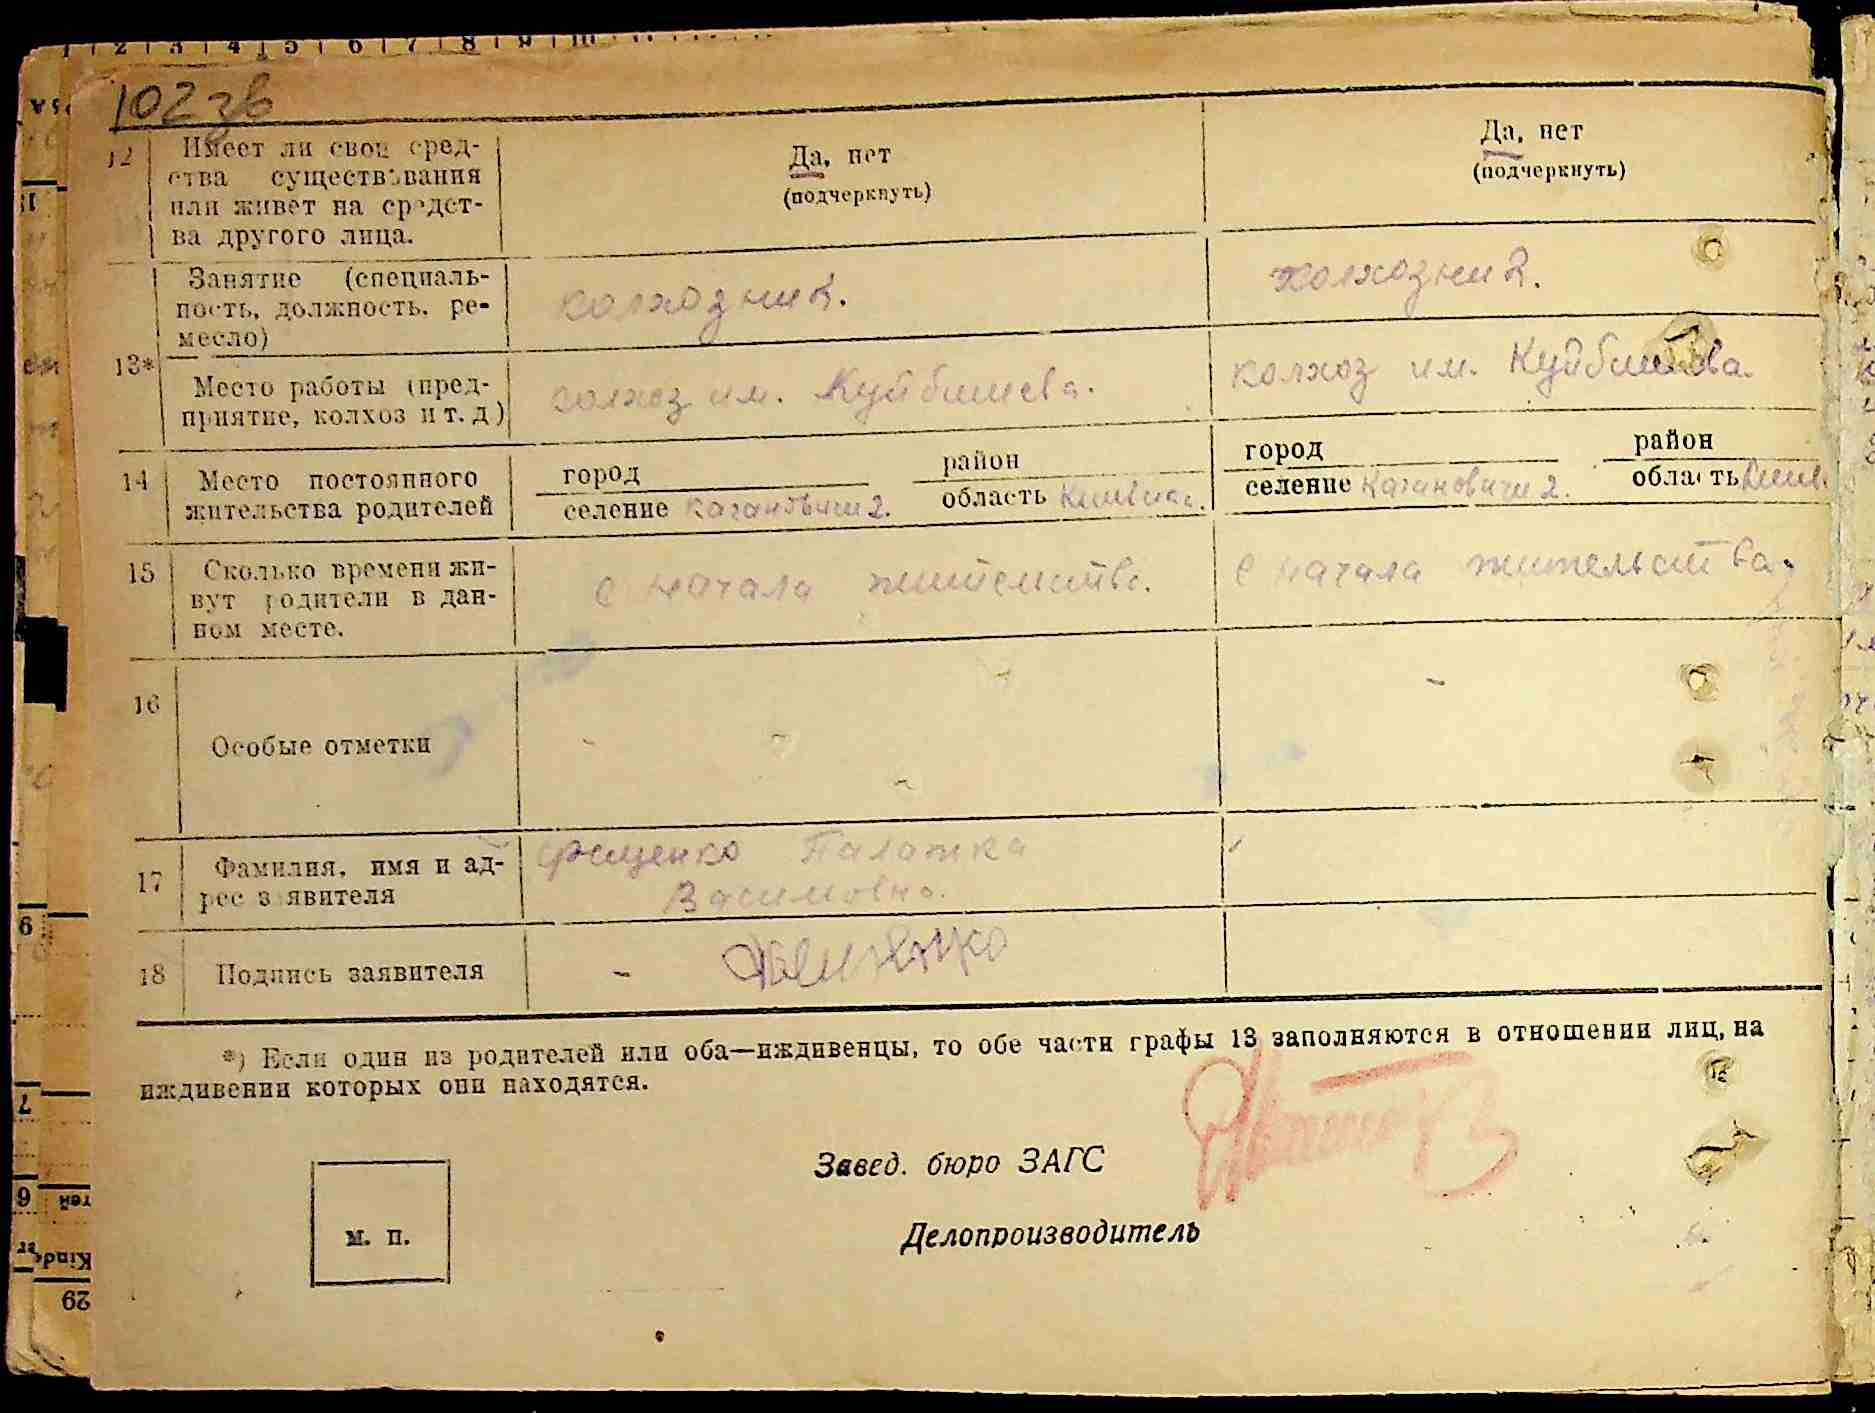 102 зв
12 Имеет ли свои сред-
ства существования
или живет на средст-
ва другого лица.
Да, нет
(подчеркнуть)
Да, нет
(подчеркнуть)
13*
Занятие (специаль-
ность, должность, ре-
месло)
колхозник.
колхозник.
Место работы (пред-
приятие, колхоз и т. д)
колхоз им. Куйбишева.
колхоз им. Куйбишева.
14 Место постоянного
жительства родителей
город район
селение Кагановичи 2. область
город район
селение Кагановичи 2. область
15 Сколько времени жи-
вут родители в дан-
ном месте.
с начала жительства.
с начала жительства.
16 Особые отметки
17 Фамилия, имя и ад-
рес заявителя
Палажка
18 Подпись заявителя
*) Если один из родителей или оба—иждивенцы, то обе части графы 13 заполняются в отношении лиц, на
иждивении которых они находятся.
Завед. бюро ЗАГС
м. п.
Делопроизводитель